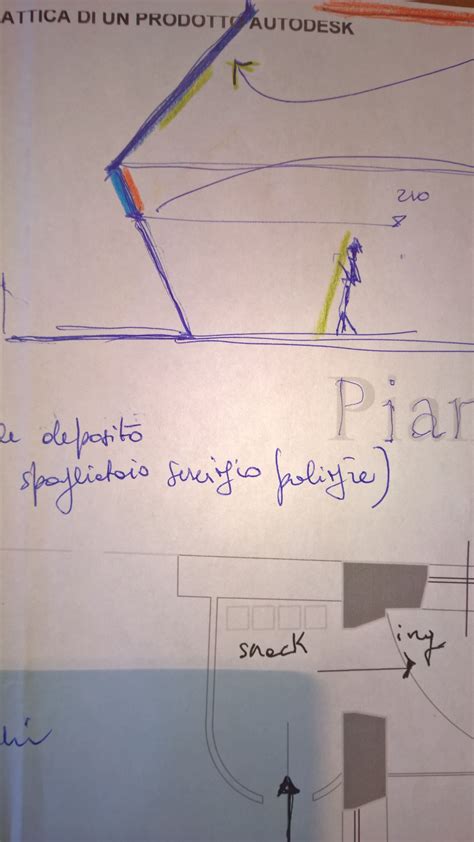 ATTICA DI UN PRODOTTO AUTODESK
210
Pian
deposito
spogliatoio servizio pulizie)
snack
ing.